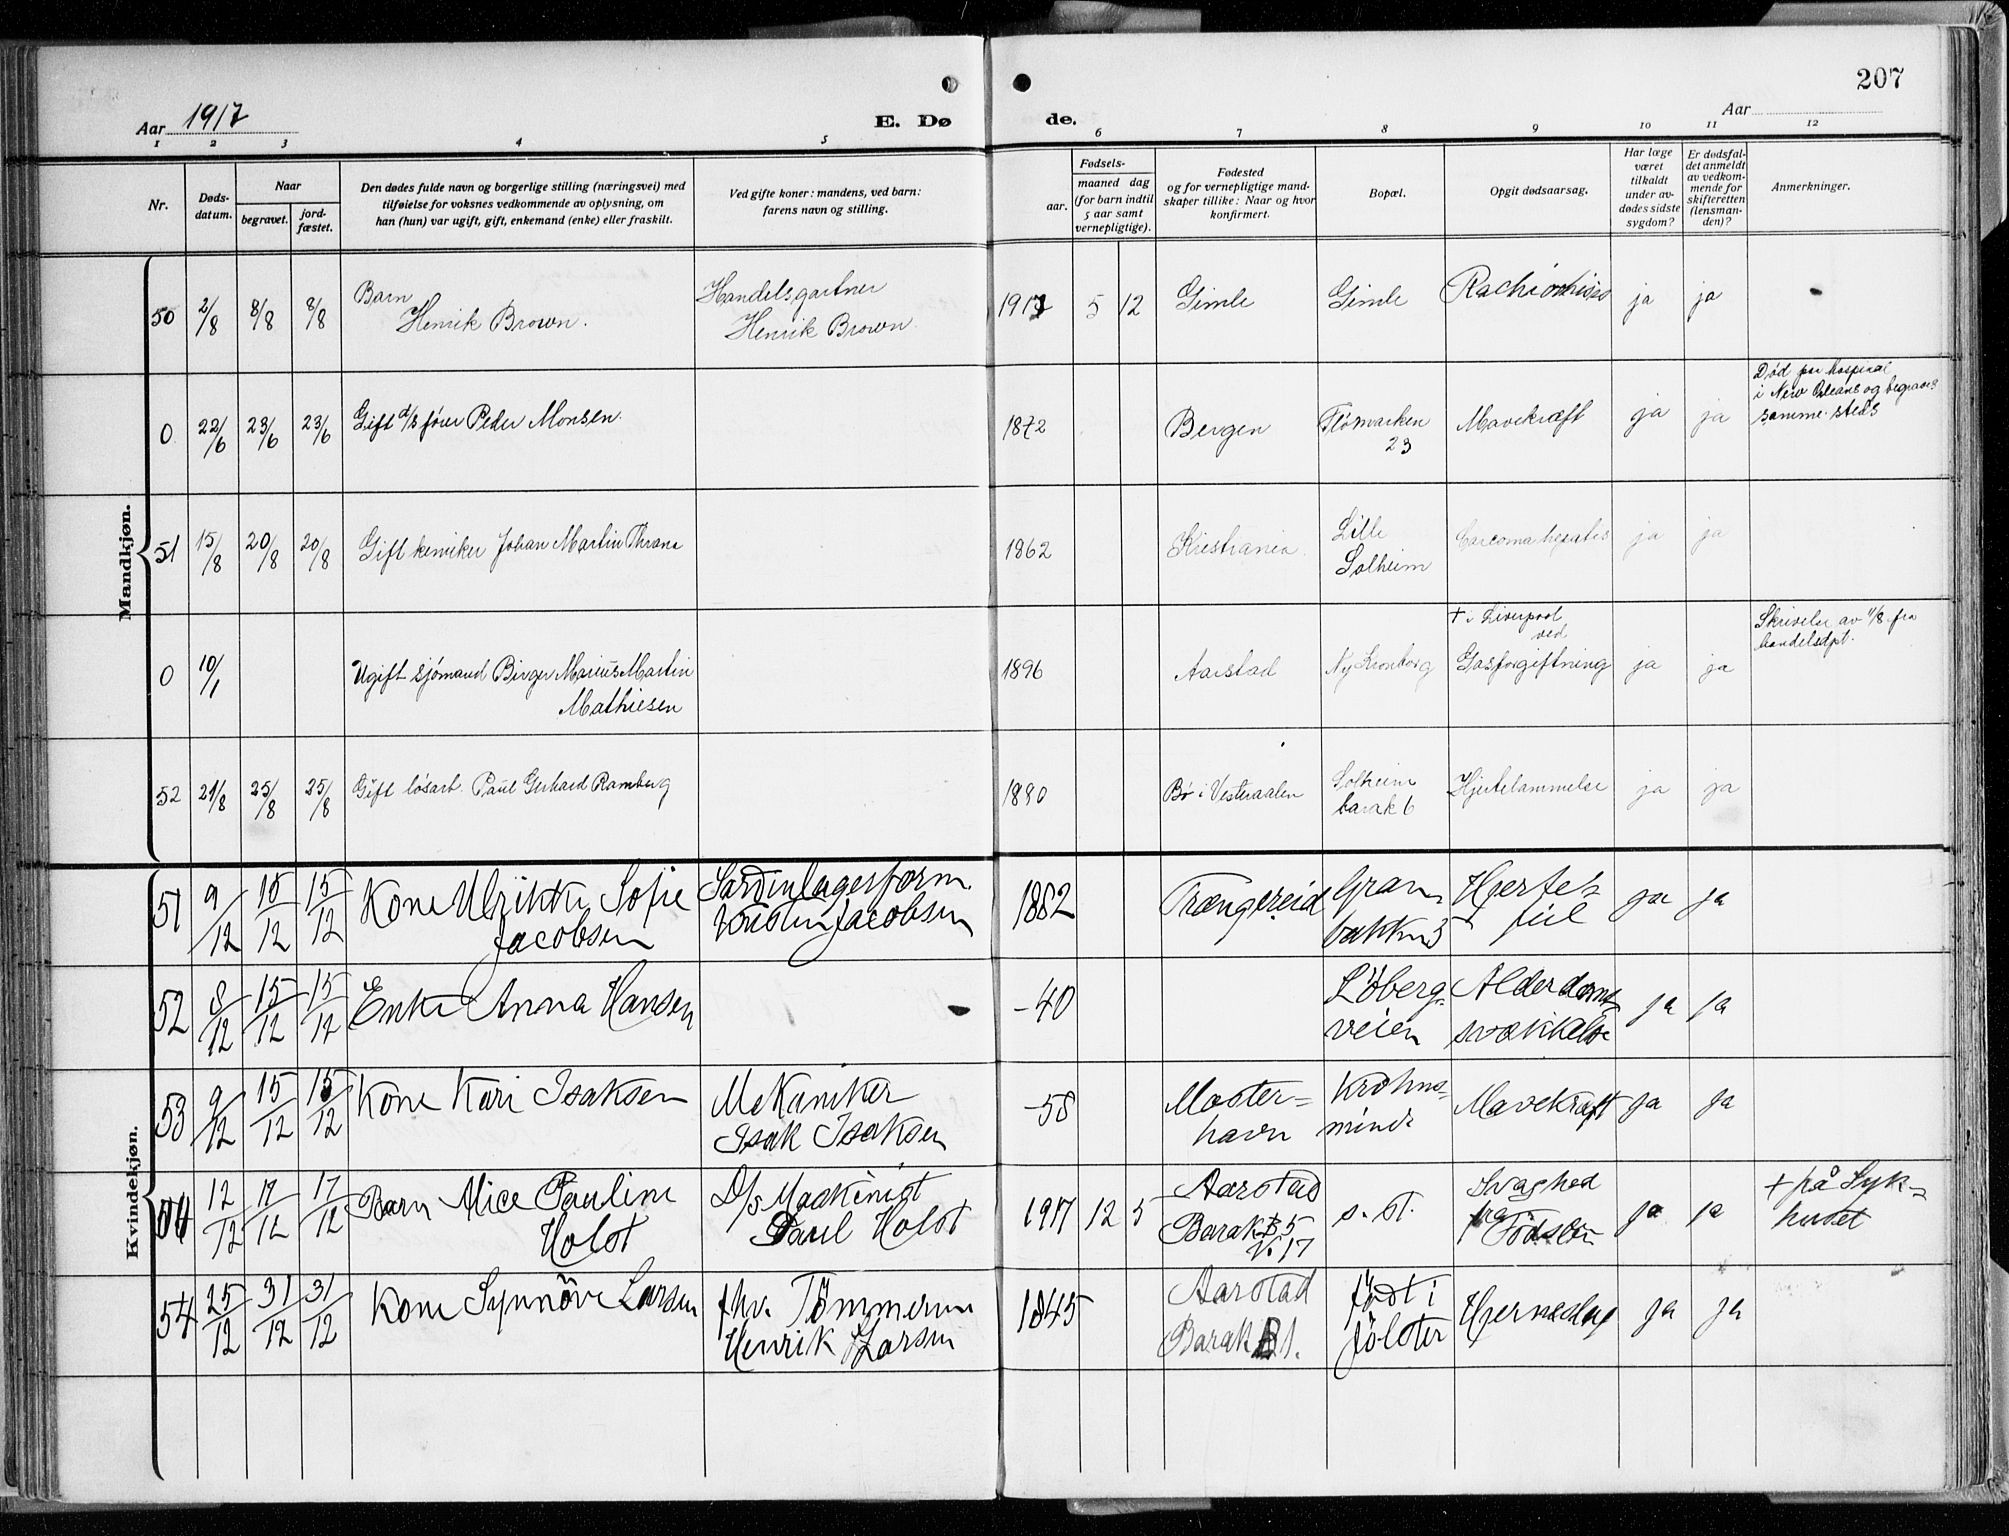 207
Aar 1917
E. Dø
de.
Aar
1 2 3 4 5 6 7 8 9 10 11 12
Nr.
Døds-
datum.
Naar
begravet.
jord-
fæstet.
Den dødes fulde navn og borgerlige stilling (næringsvei) med
tilføielse for voksnes vedkommende av oplysning, om
han (hun) var ugift, gift, enkemand (enke) eller fraskilt.
Ved gifte koner: mandens, ved barn:
farens navn og stilling.
Fødsels-
aar.
maaned dag
(for barn indtil
5 aar samt
vernepligtige).
Fødested
og for vernepligtige mand-
skaper tillike: Naar og hvor
konfirmert.
Bopæl.
Opgit dødsaarsag.
Har læge
været
tilkaldt
under av-
dødes sidste
sygdom?
Er dødsfal-
det anmeldt
av vedkom-
mende for
skifteretten
(lensman-
den)?
Anmerkninger.
Mandkjøn.
50 2/8 8/8 8/8 Barn
Henrik Brown.
Handelsgartner
Henrik Brown
1917 5 12 Gimle Gimle ja ja
0 22/6 23/6 23/6 Gift d/s fører Peder Monsen.
1872 Bergen Flømarken
23
Mavekræft ja ja
Død paa hospital
i New Orleans og begravet
samme steds
51 15/8 20/8 20/8 Gift kemiker Johan Martin Thrane
1862 Kristiania Lille
Solheim
Sarcoma hepatis ja ja
0 10/1 Ugift sjømand Birger Marius Martin
Mathiesen
1896 Aarstad Ny Kronborg
+ i Liverpool
ved
Gasforgiftning ja ja
Skrivelse av 11/8 fra
handelsdpt.
52 21/8 25/8 25/8 Gift løsarb. Paul Gerhard Ramberg
1890 Bø i Vesteraalen Solheim
barak 6
Hjertelammelse ja ja
Kvindekjøn.
51 9/12 15/12 15/12 Kone Ulrikke Sofie
Jacobsen
Sardinlagerform.
Jacobsen
1882 Trængereid Gran-
bakken 3
Hjerte-
feil
ja ja
52 8/12 15/12 15/12 Enke Anna Hansen
-40 Løberg-
veien
Alderdoms-
svækkelse
ja ja
53 9/12 15/12 15/12 Kone Kari Isaksen
Mekaniker
Isak Isaksen
-58 Moster-
havn
Krohns-
minde
Mavekræft ja ja
54 12/12 17/12 17/12 Barn Alice Pauline
Holst
D/s Maskinist
Paul Holst
1917 12 5 Aarstad
Barak B5
V. 17
s. st.
Svaghed
fra
Födselen
ja ja
+ på Syk-
huset
54 25/12 31/12 31/12 Kone Synnöve Larsen
fhv. Tömmerm
Henrik Larsen
1845 Aarstad
Barak B1.
født i
Jölster
Hjerneslag ja ja